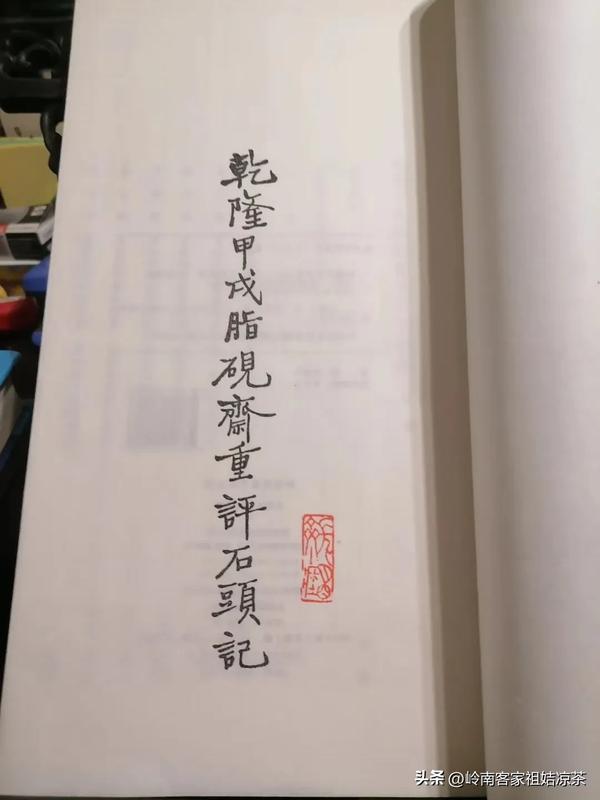 乾隆甲戌脂硯齋重評石頭記
头条 @岭南客家祖姞凉茶